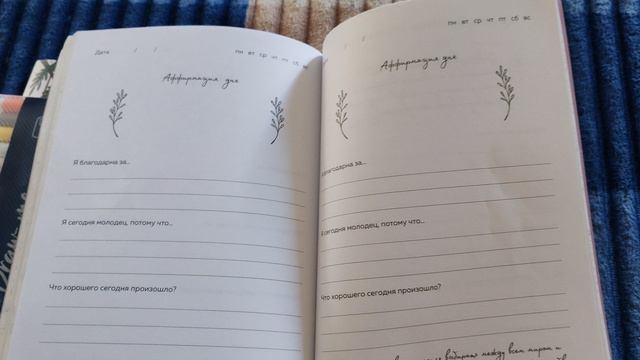 Дата / /
пн вт ср чт пт сб вс
Аффирмация дня
Я благодарна за...
Я сегодня молодец, потому что...
Что хорошего сегодня произошло?
/ /
пн вт ср чт пт сб вс
Аффирмация дня
благодарна за...
Я сегодня молодец, потому что...
Что хорошего сегодня произошло?
выбирать между всем миром и